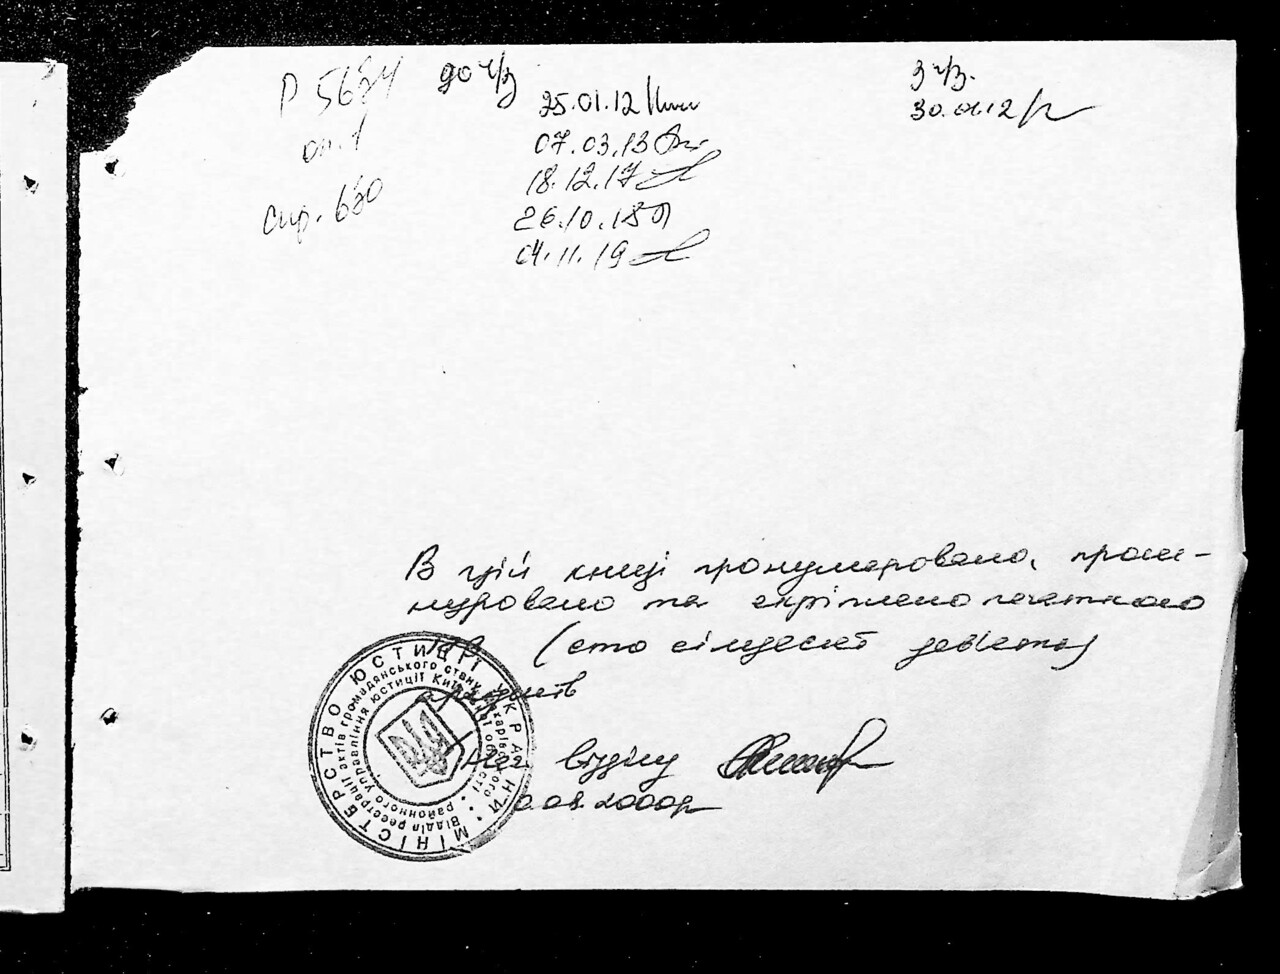 Р 5684
оп. 1
спр. 680
до ч/з
25.01.12
07.03.13
18.12.17
26.10.18
04.11.19
з ч/з.
30.01.12
В цій книзі пронумеровано, прош-
нуровано та скріплено печаткою
(сто сімдесят девять)
аркушів
Нач відділу
0.08.2000р
МІНІСТЕРСТВО ЮСТИЦІЇ УКРАЇНИ
Відділ реєстрації актів громадянського стану Макарівського
районного управління юстиції Київської області